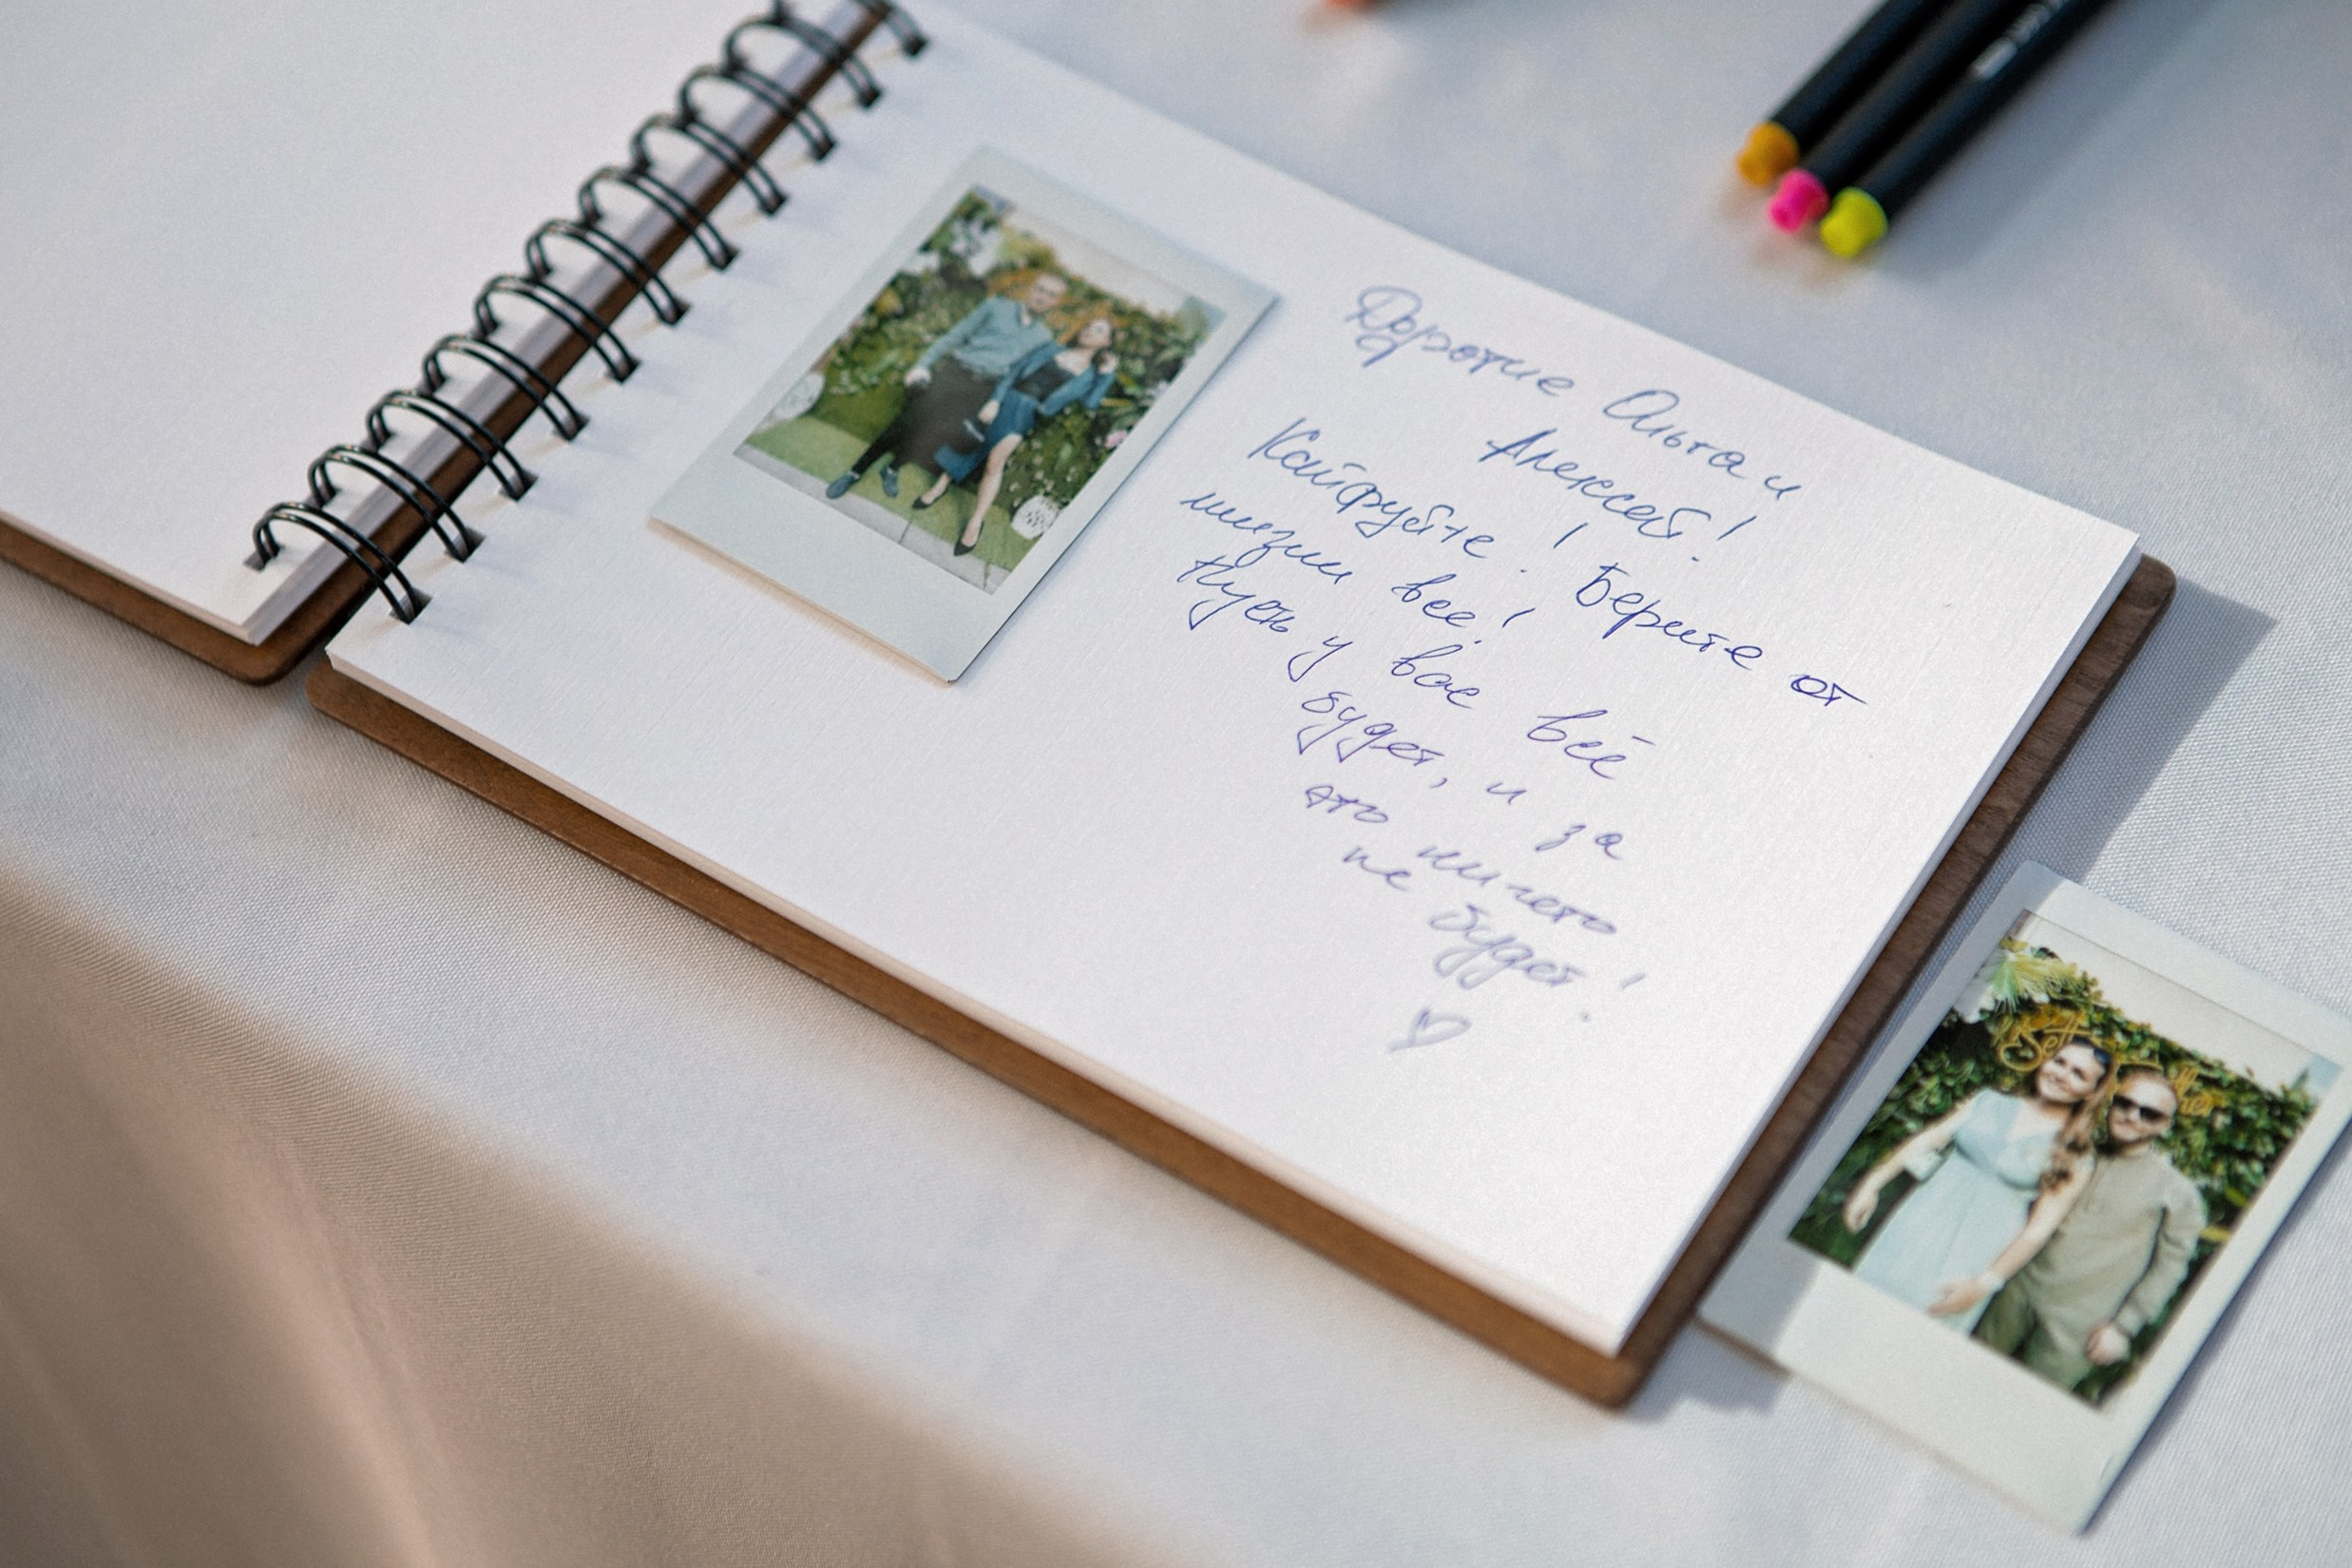 Дорогие Ольга и
Алексей!
Кайфуйте! Берите от
жизни все!
Пусть у вас всё
будет, и за
это ничего
не будет!
Better